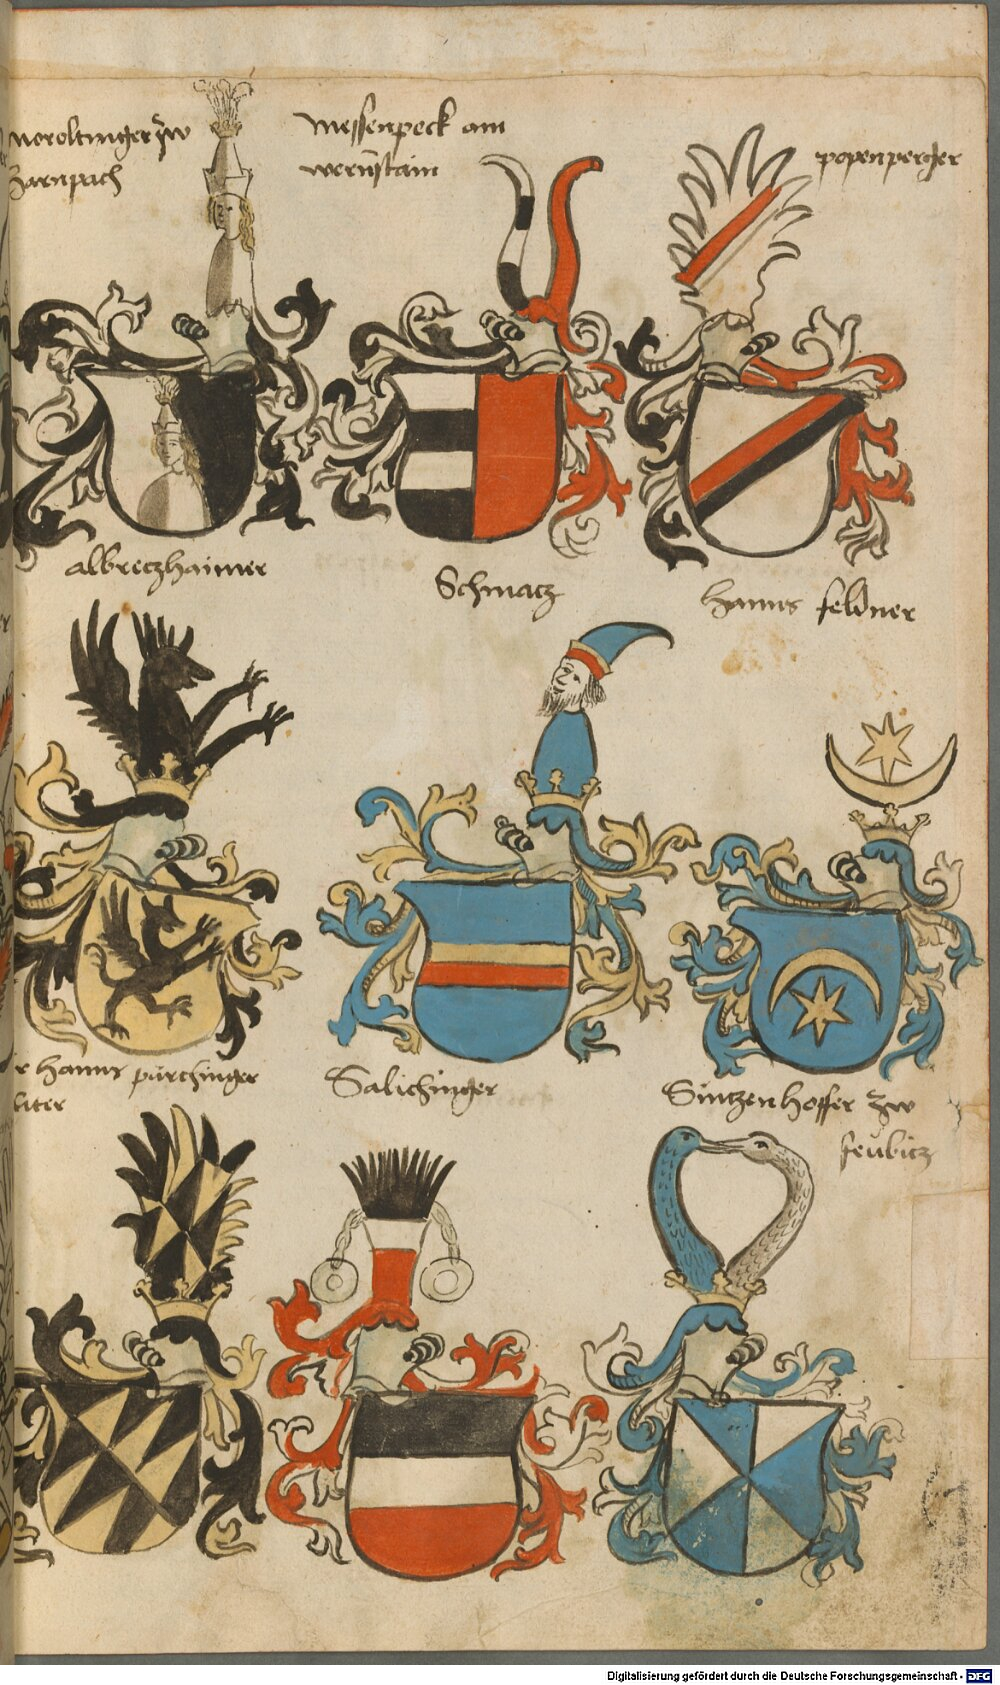 noroltinger zw
Zarnpach
messenpeck am
wernstain
popenperger
albretzhaimer
Schmatz
Hanns feldner
r Hanns pürchinger
liter
Salichinger
Sintzenhoffer zw
feubitz
Digitalisierung gefördert durch die Deutsche Forschungsgemeinschaft - DFG